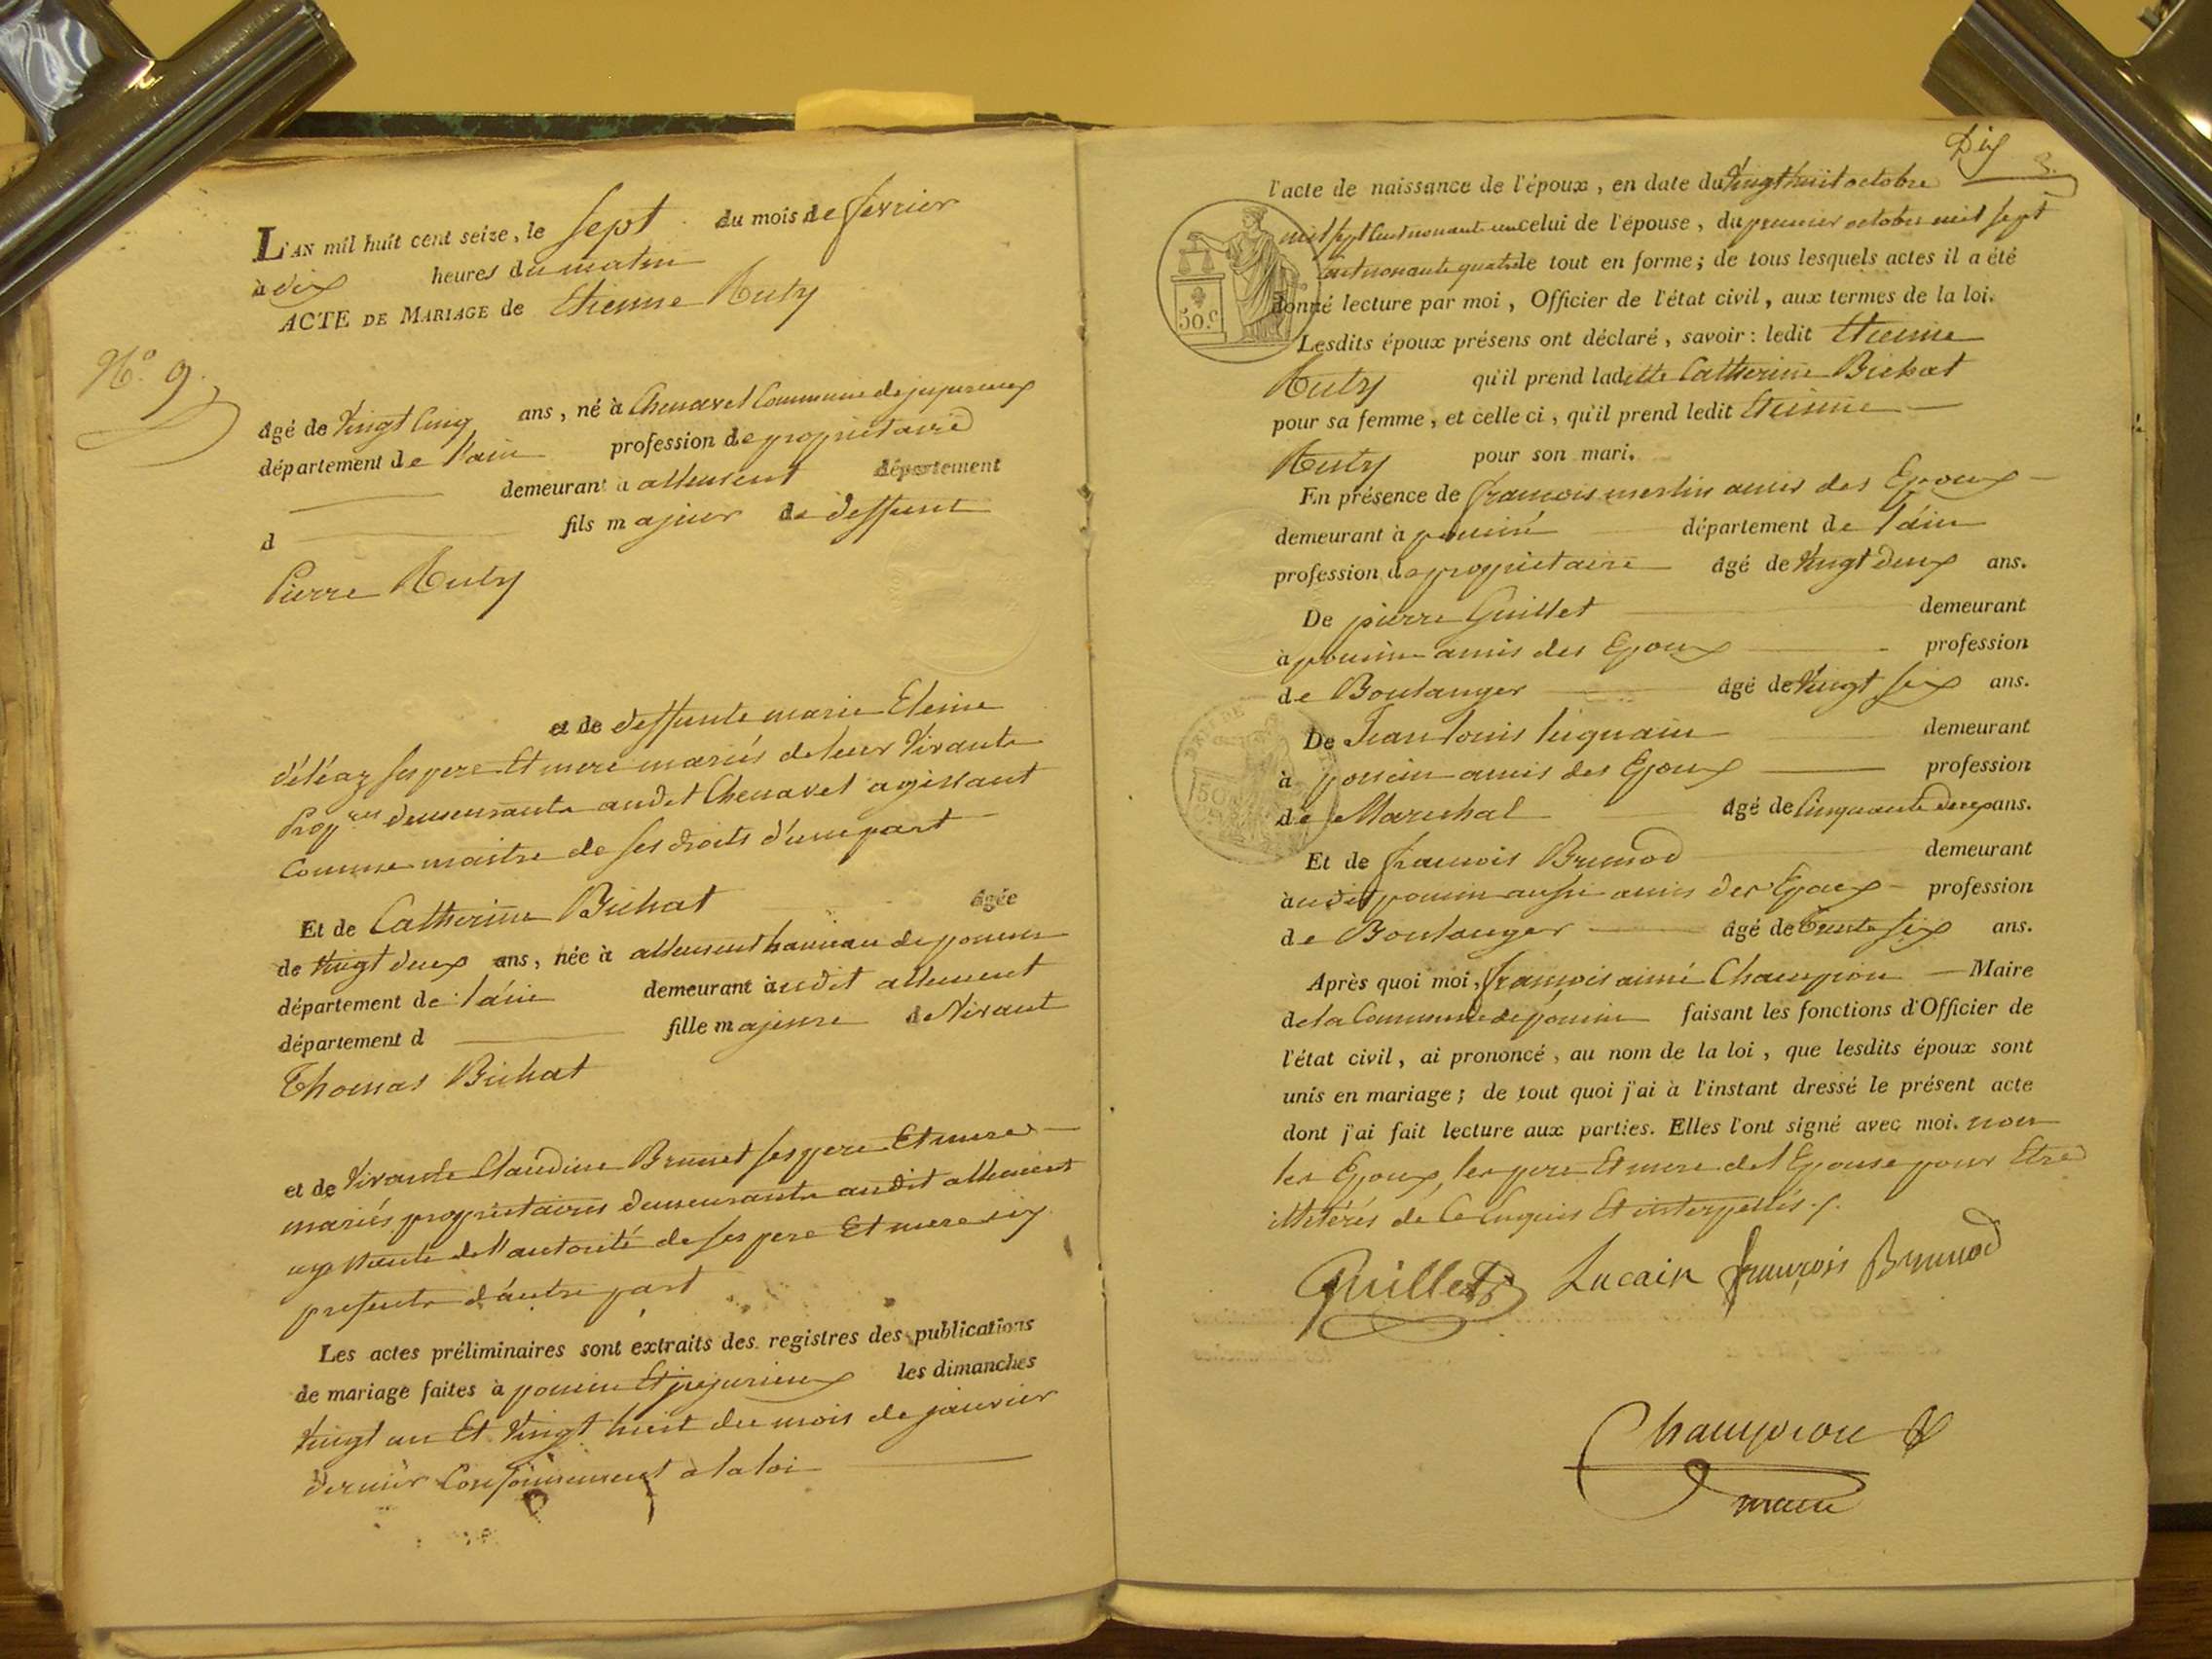 L'AN mil huit cent seize, le Sept du mois de fevrier
à dix heures du matin
ACTE DE MARIAGE de Etienne Ruty
N.o 9.
âgé de Vingt Cinq ans, né à Chenavel Commune de jujurieux
département de l'ain profession de proprietaire
demeurant à allement département
d fils majeur de deffunt
Pierre Ruty
et de deffunte marie Eleine
déléaz ses pere Et mere mariés de leur Vivants
demeurants audit Chenavel agissant
Comme maitre de ses droits d'une part
Et de Catherine Bichat âgée
de Vingt deux ans, née à allement hameau de poncin
département de l'ain demeurant audit allement
département d fille majeure de Vivant
Thomas Bichat
et de Vivante Claudine Brunet ses pere Et mere
mariés proprietaires demeurants audit allement
de l'autorité de ses pere Et mere icy
presents d'autre part
Les actes préliminaires sont extraits des registres des publications
de mariage faites à poncin Et jujurieux les dimanches
Vingt un Et Vingt huit du mois de janvier
dernier Conformément à la loi
Dix
l'acte de naissance de l'époux, en date du Vingt huit octobre
mil sept Cent nonante un celui de l'épouse, du premier octobre mil sept
Cent nonante quatre le tout en forme; de tous lesquels actes il a été
donné lecture par moi, Officier de l'état civil, aux termes de la loi.
50.c
Lesdits époux présens ont déclaré, savoir: ledit Etienne
Ruty qu'il prend ladite Catherine Bichat
pour sa femme, et celle ci, qu'il prend ledit Etienne
Ruty pour son mari.
En présence de francois merlin amis des Epoux
demeurant à poncin département de l'ain
profession de proprietaire âgé de Vingt deux ans.
De pierre Guillet demeurant
à poncin amis des Epoux profession
de Boulanger âgé de Vingt six ans.
De Jean Louis demeurant
à poncin amis des Epoux profession
de Marechal âgé de Cinquante deux ans.
Et de francois Brunod demeurant
audit poncin aussi amis des Epoux profession
de Boulanger âgé de trente six ans.
Après quoi moi, françois aimé Champion Maire
de la Commune de poncin faisant les fonctions d'Officier de
l'état civil, ai prononcé, au nom de la loi, que lesdits époux sont
unis en mariage; de tout quoi j'ai à l'instant dressé le présent acte
dont j'ai fait lecture aux parties. Elles l'ont signé avec moi. non
les Epoux, les pere Et mere de l'Epouse pour Etre
illitérés de Ce Enquis Et interpellés.
Guillet Lucain françois Brunod
Champion
maire